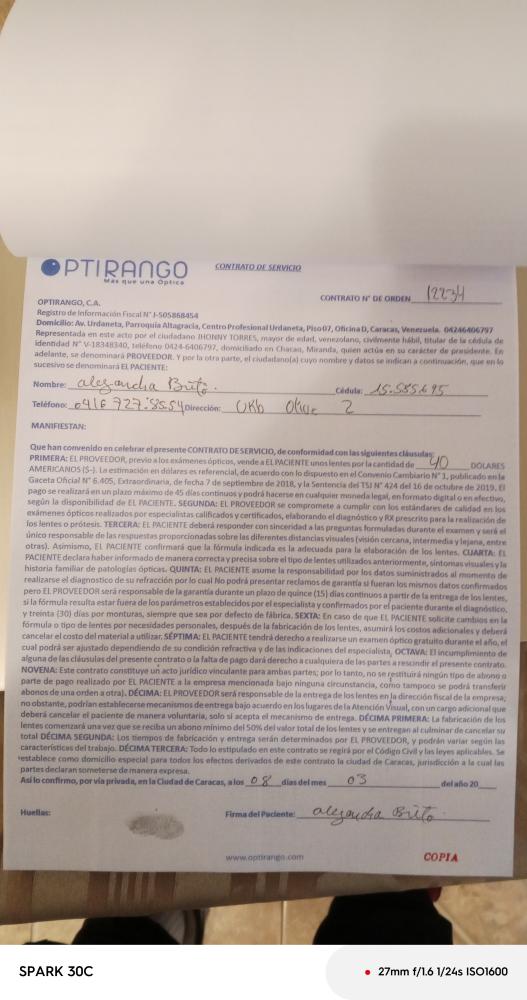 OPTIRANGO
Más que una Óptica
CONTRATO DE SERVICIO
CONTRATO N° DE ORDEN 12234
OPTIRANGO, C.A.
Registro de Información Fiscal N° J-505868454
Domicilio: Av. Urdaneta, Parroquia Altagracia, Centro Profesional Urdaneta, Piso 07, Oficina D, Caracas, Venezuela. 04246406797
Representada en este acto por el ciudadano JHONNY TORRES, mayor de edad, venezolano, civilmente hábil, titular de la cédula de
identidad N° V-18348340, teléfono 0424-6406797, domiciliado en Chacao, Miranda, quien actúa en su carácter de presidente. En
adelante, se denominará PROVEEDOR. Y por la otra parte, el ciudadano(a) cuyo nombre y datos se indican a continuación, que en lo
sucesivo se denominará EL PACIENTE:
Nombre: alejandra Brito. Cédula: 15.585.695
Teléfono: 0416 727.5554 Dirección: 2
MANIFIESTAN:
Que han convenido en celebrar el presente CONTRATO DE SERVICIO, de conformidad con las siguientes cláusulas:
PRIMERA: EL PROVEEDOR, previo a los exámenes ópticos, vende a EL PACIENTE unos lentes por la cantidad de 40 DÓLARES
AMERICANOS ($-). La estimación en dólares es referencial, de acuerdo con lo dispuesto en el Convenio Cambiario N° 1, publicado en la
Gaceta Oficial N° 6.405, Extraordinaria, de fecha 7 de septiembre de 2018, y la Sentencia del TSJ N° 424 del 16 de octubre de 2019. El
pago se realizará en un plazo máximo de 45 días continuos y podrá hacerse en cualquier moneda legal, en formato digital o en efectivo,
según la disponibilidad de EL PACIENTE. SEGUNDA: EL PROVEEDOR se compromete a cumplir con los estándares de calidad en los
exámenes ópticos realizados por especialistas calificados y certificados, elaborando el diagnóstico y RX prescrito para la realización de
los lentes o prótesis. TERCERA: EL PACIENTE deberá responder con sinceridad a las preguntas formuladas durante el examen y será el
único responsable de las respuestas proporcionadas sobre las diferentes distancias visuales (visión cercana, intermedia y lejana, entre
otras). Asimismo, EL PACIENTE confirmará que la fórmula indicada es la adecuada para la elaboración de los lentes. CUARTA: EL
PACIENTE declara haber informado de manera correcta y precisa sobre el tipo de lentes utilizados anteriormente, síntomas visuales y la
historia familiar de patologías ópticas. QUINTA: EL PACIENTE asume la responsabilidad por los datos suministrados al momento de
realizarse el diagnostico de su refracción por lo cual No podrá presentar reclamos de garantía si fueran los mismos datos confirmados
pero EL PROVEEDOR será responsable de la garantía durante un plazo de quince (15) días continuos a partir de la entrega de los lentes,
y treinta (30) días por monturas, siempre que sea por defecto de fábrica.
si la fórmula resulta estar fuera de los parámetros establecidos por el especialista y confirmados por el paciente durante el diagnóstico,
SEXTA: En caso de que EL PACIENTE solicite cambios en la
fórmula o tipo de lentes por necesidades personales, después de la fabricación de los lentes, asumirá los costos adicionales y deberá
cancelar el costo del material a utilizar. SÉPTIMA: EL PACIENTE tendrá derecho a realizarse un examen óptico gratuito durante el año, el
cual podrá ser ajustado dependiendo de su condición refractiva y de las indicaciones del especialista. OCTAVA: El incumplimiento de
alguna de las cláusulas del presente contrato o la falta de pago dará derecho a cualquiera de las partes a rescindir el presente contrato.
NOVENA: Este contrato constituye un acto jurídico vinculante para ambas partes; por lo tanto, no se restituirá ningún tipo de abono o
parte de pago realizado por EL PACIENTE a la empresa mencionada bajo ninguna circunstancia, como tampoco se podrá transferir
abonos de una orden a otra). DÉCIMA: EL PROVEEDOR será responsable de la entrega de los lentes en la dirección fiscal de la empresa;
no obstante, podrían establecerse mecanismos de entrega bajo acuerdo en los lugares de la Atención Visual, con un cargo adicional que
deberá cancelar el paciente de manera voluntaria, solo si acepta el mecanismo de entrega. DÉCIMA PRIMERA: La fabricación de los
lentes comenzará una vez que se reciba un abono mínimo del 50% del valor total de los lentes y se entregan al culminar de cancelar su
total DÉCIMA SEGUNDA: Los tiempos de fabricación y entrega serán determinados por EL PROVEEDOR, y podrán variar según las
características del trabajo. DÉCIMA TERCERA: Todo lo estipulado en este contrato se regirá por el Código Civil y las leyes aplicables. Se
establece como domicilio especial para todos los efectos derivados de este contrato la ciudad de Caracas, jurisdicción a la cual las
partes declaran someterse de manera expresa.
Así lo confirmo, por vía privada, en la Ciudad de Caracas, a los 08 días del mes 03 del año 20
Huellas:
Firma del Paciente: alejandra Brito.
www.optirango.com
COPIA
SPARK 30C
27mm f/1.6 1/24s ISO1600